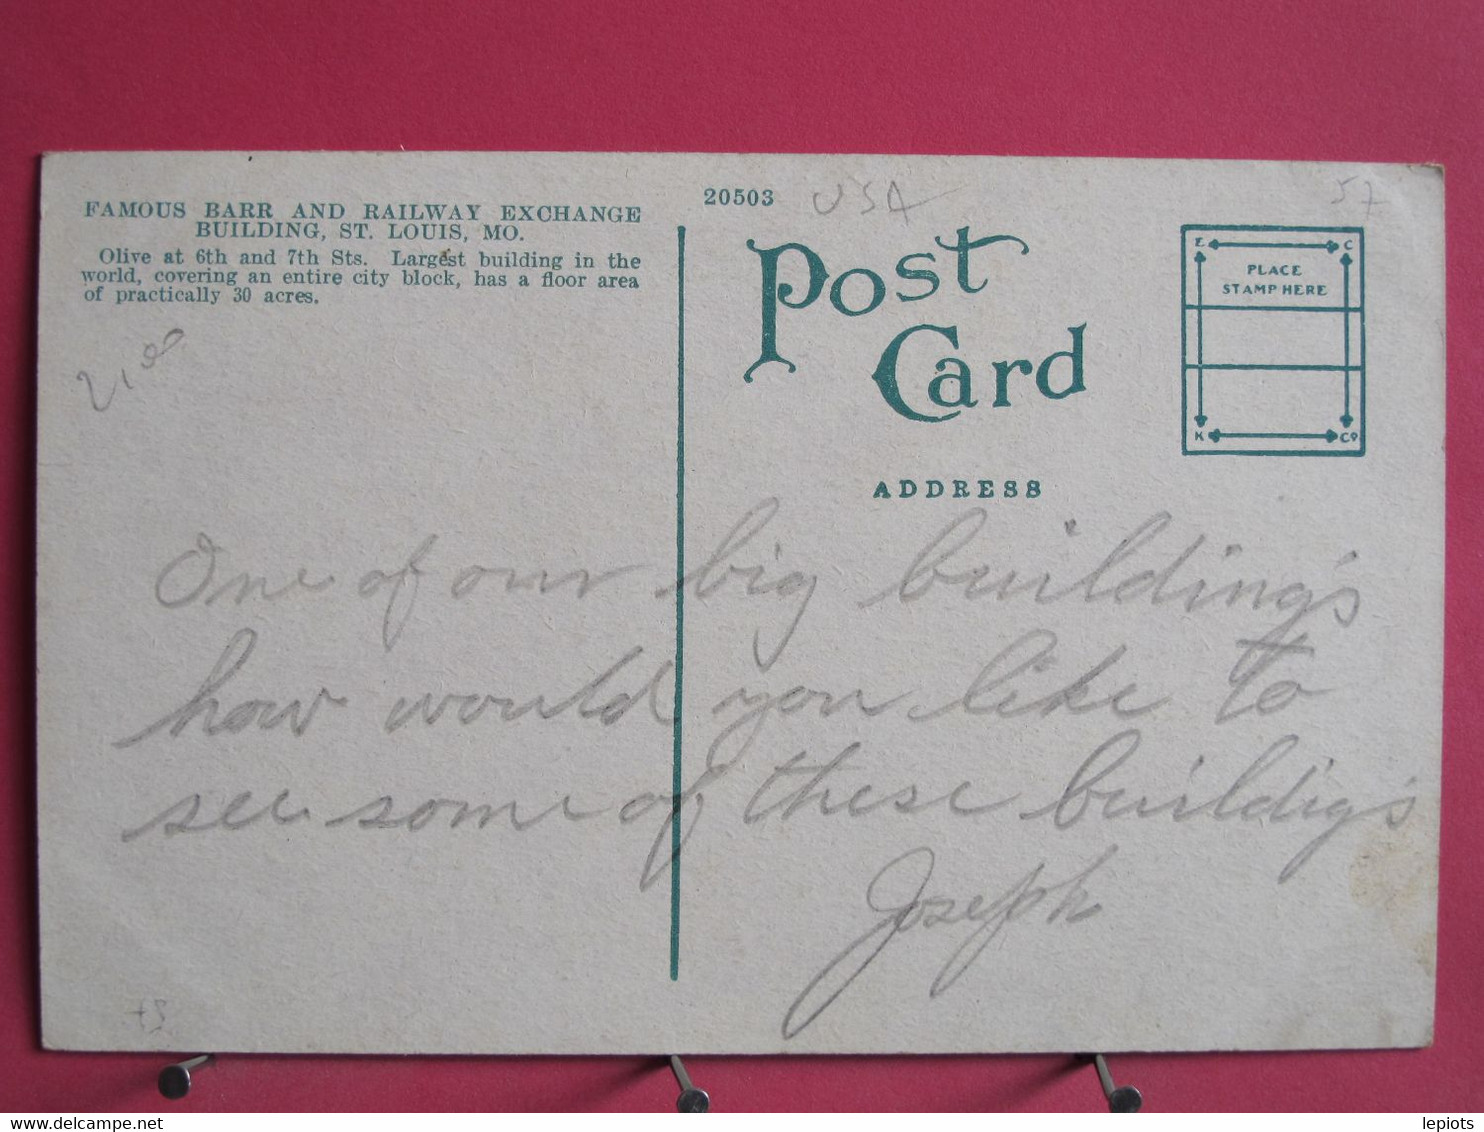 FAMOUS BARR AND RAILWAY EXCHANGE
BUILDING, ST. LOUIS, MO.
Olive at 6th and 7th Sts. Largest building in the
world, covering an entire city block, has a floor area
of practically 30 acres.
20503
USA
57
Post
Card
ADDRESS
E C
PLACE
STAMP HERE
K Co
One of our big building's
how would you like to
see some of these buildig's
Joseph
delcampe.net
lepiots